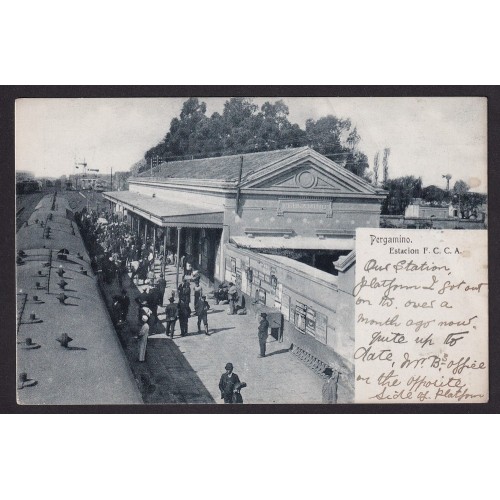 Pergamino.
Estacion F. C. C. A.
Our Station,
platform I got out
on to over a
month ago now.
quite up to
date, Mr. B's office
on the opposite
side of Platform